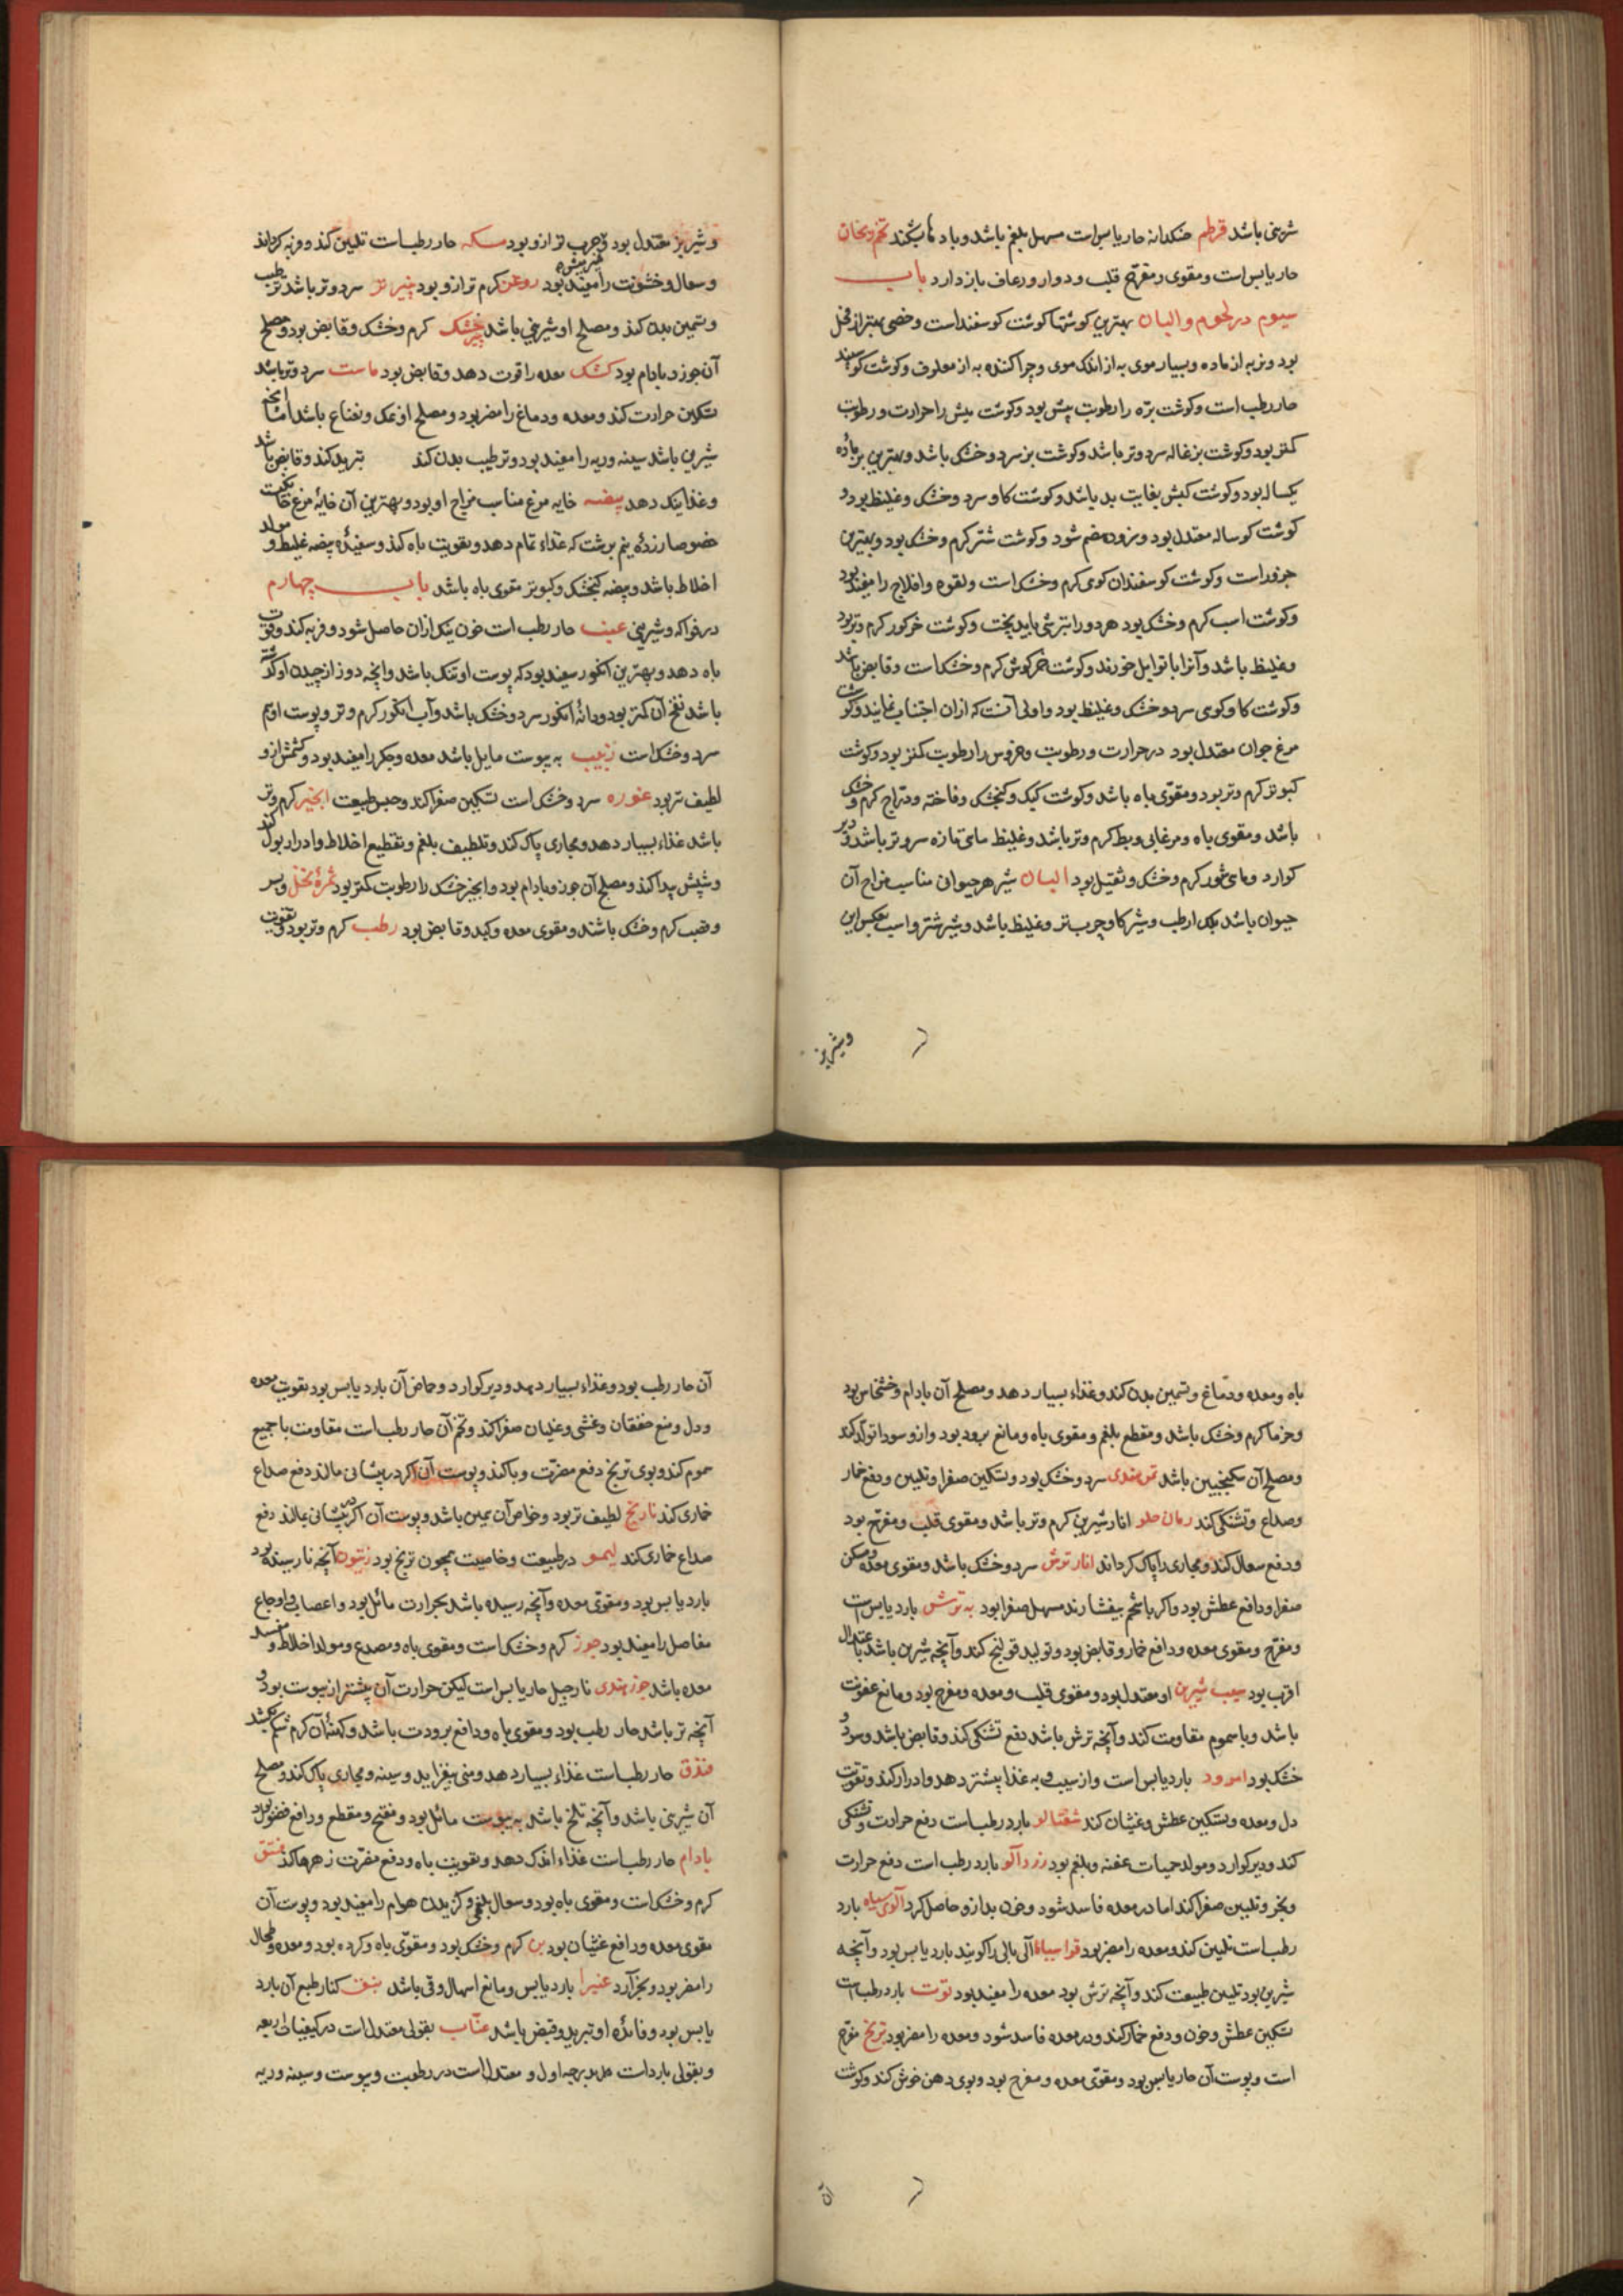 شیرینی باشد قرطم خسکدانه حار یابس است مسهل بلغم باشد و بادها بشکند تخم ریحان
حار یابس است و مقوی و مفرّح قلب و دوار و رعاف باز دارد باب
سیوم در لحوم و البان بهترین کوشتها کوشت کوسفند است و خصی بهتر از فحل
بود و نر به از ماده و بسیار موی به از اندک موی و چرا کننده به از معلوف و کوشت کوسفند
حار رطب است و کوشت برّه را رطوبت بیش بود و کوشت میش را حرارت و رطوبت
کمتر بود و کوشت بزغاله سرد و تر باشد و کوشت بز سرد و خشک باشد و بهترین بز ماده
یکساله بود و کوشت کبش بغایت بد باشد و کوشت کاو سرد و خشک و غلیظ بود و
کوشت کوساله معتدل بود و زود هضم شود و کوشت شتر کرم و خشک بود و بهترین
جزور است و کوشت کوسفندان کوهی کرم و خشک است و لقوه و افلاج را مفید بود
و کوشت اسب کرم و خشک بود هر دو را بترشی باید پخت و کوشت خر کور کرم و تر بود
و غلیظ باشد و آنرا با توابل خورند و کوشت خرکوش کرم و خشک است و قابض باشد
و کوشت کاو کوهی سرد و خشک و غلیظ بود و اولی آنست که ازان اجتناب نمایند و کوشت
مرغ جوان معتدل بود در حرارت و رطوبت و خروس را رطوبت کمتر بود و کوشت
کبوتر کرم و تر بود و مقوّی باه باشد و کوشت کبک و کنجشک و فاخته و درّاج کرم و خشک
باشد و مقوی باه و مرغابی و بط کرم و تر باشد و غلیظ ماهی تازه سرد و تر باشد و دیر
کوارد و ماهی شور کرم و خشک و ثقیل بود البان شیر هر حیوان مناسب مزاج آن
حیوان باشد لیک ارطب و شیر کاو چرب تر و غلیظ باشد و شیر شتر و اسب بعکس این
و شیر بز
و شیر بز معتدل بود و چرب تر ازو بود مسکه حار رطب است تلیین کند و فربه کرداند
و سعال و خشونت را مفید بود روغن کرم تر ازو بود پنیر تر سرد و تر باشد ترطیب
و تسمین بدن کند و مصلح او شیرینی باشد پنیر خشک کرم و خشک و قابض بود و مصلح
آن جوز و بادام بود کشک معده را قوت دهد و قابض بود ماست سرد و تر باشد
تسکین حرارت کند و معده و دماغ را مضر بود و مصلح او نمک و نعناع باشد اما آنچه
شیرین باشد سینه و ریه را مفید بود و ترطیب بدن کند تبرید کند و قابض باشد
و غذا نیک دهد بیضه خایه مرغ مناسب مزاج او بود و بهترین آن خایهٔ مرغ خانکیست
خصوصا زردهٔ نیم برشت که غذاء تمام دهد و تقویت باه کند و سفیدهٔ بیضه غلیظ و مولد
اخلاط باشد و بیضه کنجشک و کبوتر مقوی باه باشد باب چهارم
در فواکه و شیرینی عنب حار رطب است خون نیک ازان حاصل شود و فربه کند و قوت
باه دهد و بهترین انکور سفید بود که پوست او تنک باشد و آنچه دو روز از چیدن او کذشته
باشد نفخ آن کمتر بود و دانهٔ انکور سرد و خشک باشد و آب انکور کرم و تر و پوست او هم
سرد و خشک است زبیب به یبوست مایل باشد معده و جکر را مفید بود و کشمش ازو
لطیف تر بود غوره سرد و خشک است تسکین صفرا کند و حبس طبیعت انجیر کرم و تر
باشد غذاء بسیار دهد و مجاری پاک کند و تلطیف بلغم و تقطیع اخلاط و ادرار بول کند
و شپش پیدا کند و مصلح آن جوز و بادام بود و انجیر خشک را رطوبت کمتر بود ثمرهٔ نخل و بسر
و قصب کرم و خشک باشند و مقوی معده و کبد و قابض بود رطب کرم و تر بود و تقویت
باه و معده و دماغ و تسمین بدن کند و غذاء بسیار دهد و مصلح آن بادام و خشخاش بود
و خرما کرم و خشک باشد و مقطع بلغم و مقوی باه و مانع برود بود و ازو سودا تولّد کند
و مصلح آن سکنجبین باشد تمر هندی سرد و خشک بود و تسکین صفرا و تلیین و دفع خمار
و صداع و تشنکی کند رمان حلو انار شیرین کرم و تر باشد و مقوی قلب و مفرّح بود
و دفع سعال کند و مجاری را پاک کرداند انار ترش سرد و خشک باشد و مقوی معده و مسکن
صفرا و دافع عطش بود و اکر با شحم بیفشارند مسهل صفرا بود به ترش بارد یابس است
و مفرّح و مقوی معده و دافع خمار و قابض بود و تولید قولنج کند و آنچه شیرین باشد باعتدال
اقرب بود سیب شیرین او معتدل بود و مقوی قلب و معده و مفرح بود و مانع عفونت
باشد و با سموم مقاومت کند و آنچه ترش باشد دفع تشنکی کند و قابض باشد و سرد و
خشک بود امرود بارد یابس است و از سیب و به غذا بیشتر دهد و ادرار کند و تقویت
دل و معده و تسکین عطش و غثیان کند شفتالو بارد رطب است دفع حرارت و تشنکی
کند و دیر کوارد و مولد حمیات عفنه و بلغم بود زرد آلو بارد رطب است دفع حرارت
و بخر و تلیین صفرا کند اما در معده فاسد شود و خون بد ازو حاصل کردد آلوی سیاه بارد
رطب است تلیین کند و معده را مضر بود قراسیا آلی بالی را کویند بارد یابس بود و آنچه
شیرین بود تلیین طبیعت کند و آنچه ترش بود معده را مفید بود توت بارد رطب است
تسکین عطش و خون و دفع خمار کند و در معده فاسد شود و معده را مضر بود ترنج مفرّح
است و پوست آن حار یابس بود و مقوّی معده و مفرح بود و بوی دهن خوش کند و کوشت
آن
آن حار رطب بود و غذاء بسیار دهد و دیر کوارد و حماض آن بارد یابس بود تقویت معده
و دل و منع خفقان و غشی و غلیان صفرا کند و تخم آن حار رطب است مقاومت با جمیع
سموم کند و بوی ترنج دفع مضرّت وبا کند و پوست آن اکر در پیشانی مالند دفع صداع
خماری کند نارنج لطیف تر بود و خواص آن همین باشد و پوست آن اکر در پیشانی بمالند دفع
صداع خماری کند لیمو در طبیعت و خاصیت همچون ترنج بود زیتون آنچه نارسیده بود
بارد یابس بود و مقوّی معده و آنچه رسیده باشد بحرارت مائل بود و اعصاب و اوجاع
مفاصل را مفید بود جوز کرم و خشک است و مقوی باه و مصدع و مولد اخلاط و مفسد
معده باشد جوز هندی نارجیل حار یابس است لیکن حرارت آن بیشتر از یبوست بود و
آنچه تر باشد حار رطب بود و مقوی باه و دافع برودت باشد و کهنهٔ آن کرم شکم بکشد
فندق حار رطب است غذاء بسیار دهد و منی بیفزاید و سینه و مجاری پاک کند و مصلح
آن شیرینی باشد و آنچه تلخ باشد به یبوست مائل بود و مفتح و مقطع و رافع فضول بود
بادام حار رطب است غذاء اندک دهد و تقویت باه و دفع مضرّت زهرها کند فستق
کرم و خشک است و مقوی باه بود و سعال بلغمی و کزیدن هوام را مفید بود و پوست آن
مقوی معده و دافع غثیان بود بن کرم و خشک بود و مقوّی باه و کرده بود و معده و طحال
را مضر بود و بخر آرد غبیرا بارد یابس و مانع اسهال و قی باشد نبق کنار طبع آن بارد
یابس بود و فائدهٔ او تبرید و قبض باشد عنّاب بقولی معتدل است در کیفیات اربعه
و بقولی بارد است در درجه اول و معتدل است در رطوبت و یبوست و سینه و ریه